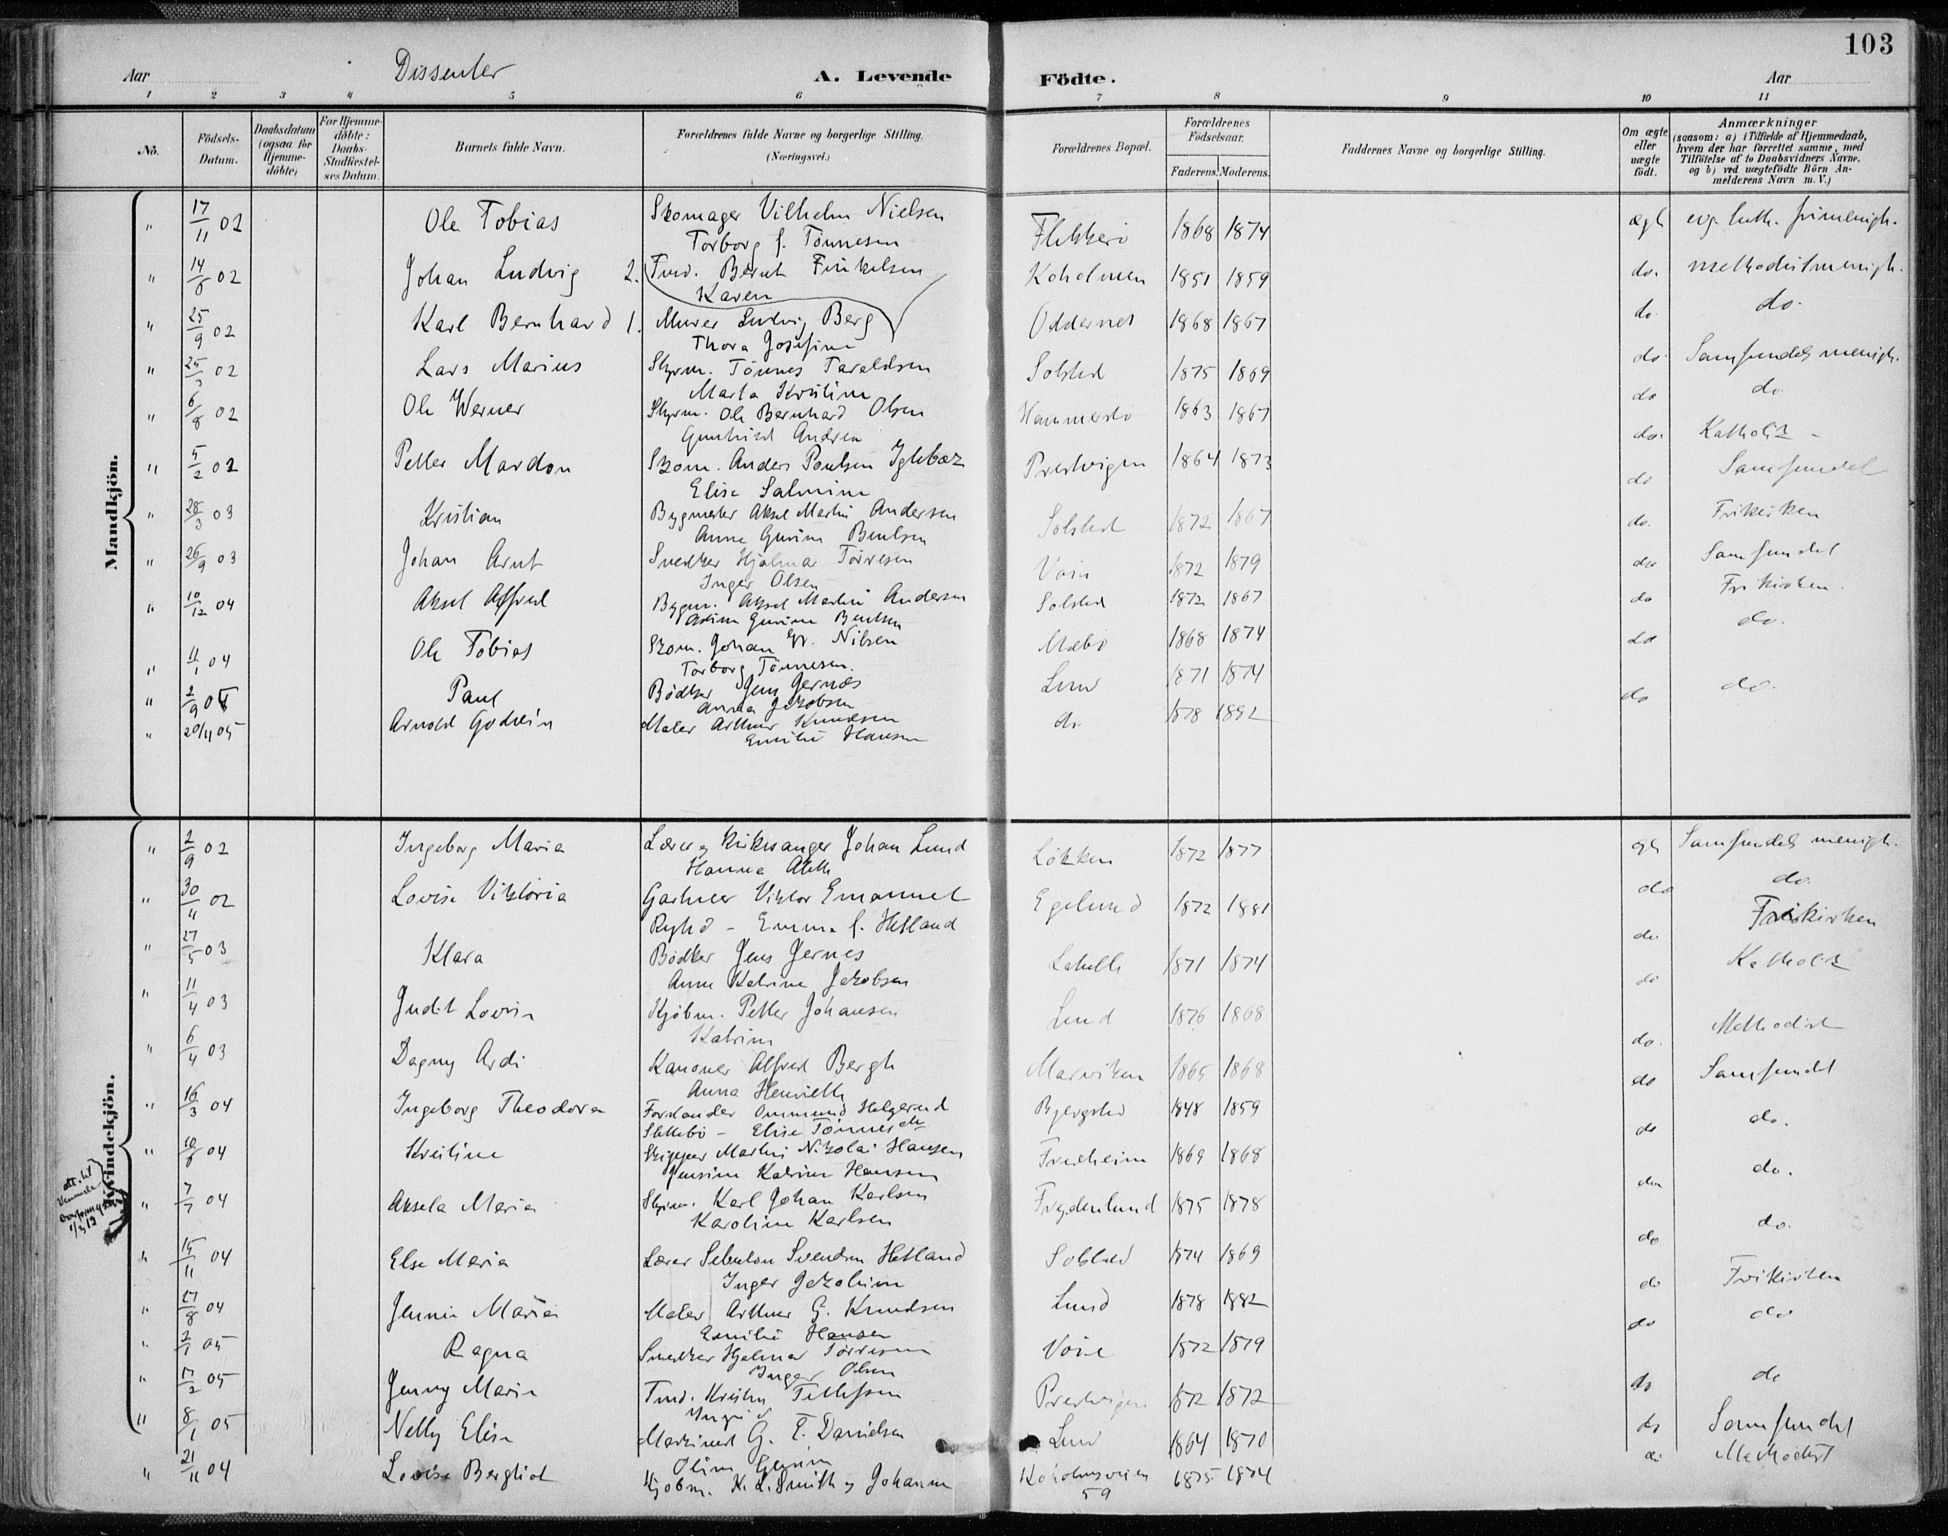 103
Aar
Dissenter
A. Levende Födte.
Aar
1 2 3 4 5 6 7 8 9 10 11
Nö.
Födsels-Datum.
Daabsdatum (ogsaa for Hjemmedöbte)
For Hjemmedöbte: Daabs-Stadfæstelses Datum.
Barnets fulde Navn.
Forældrenes fulde Navne og borgerlige Stilling. (Næringsvei.)
Forældrenes Bopæl.
Forældrenes Födselsaar.
Faderens. Moderens.
Faddernes Navne og borgerlige Stilling.
Om ægte eller uægte födt.
Anmærkninger
(saasom: a) i Tilfælde af Hjemmedaab, hvem der har forrettet samme, med Tilföielse af to Daabsvidners Navne. og b) ved uægtefödte Börn Anmelderens Navn m. V.)
Mandkjön.
" 17/11 02 Ole Tobias Skomager Vilhelm Nielsen Flekkerö 1868 1874 ægte evg. luth. frimenigh.
Torborg f. Tönnesen
" 14/8 02 Johan Ludvig 2. Tmd. Bernt Terkelsen Koholmen 1851 1859 do. methodistmenigh.
Karen
" 25/9 02 Karl Bernhard 1. Murer Ludvig Berg Oddernes 1868 1867 do. do.
Thora Josefine
" 25/3 02 Lars Marius Styrm. Tönnes Taraldsen Solsted 1875 1869 do Samfundets menigh.
Marta Kristine
" 6/8 02 Ole Werner Styrm. Ole Bernhard Olsen 1863 1867 do do.
Gunhild Andrea
" 5/2 02 Petter Mardon Skom. Anders Poulsen Iglebæk Prestvigen 1864 1873 do. Katholik
Elise Salmine
" 28/3 03 Kristian Bygmester Aksel Martin Andersen Solsted 1872 1867 do Samfundet
Anne Gurine Bentsen
" 26/9 03 Johan Arnt Snedker Hjalmar Törresen Voie 1872 1879 do. Frikirken
Inger Olsen
" 10/12 04 Aksel Alfred Bygm. Aksel Martin Andersen Solsted 1872 1867 do Samfundet
Gurine Bentsen
" 11/1 04 Ole Tobias Skom. Johan W. Nilsen Mæbö 1868 1874 do Frikirken.
Torborg Tönnesen.
" 2/9 05 Paul Bödker Jens Jernes Lund 1871 1874 do do.
Anna Jakobsen
" 20/11 05 Arnold Godvin Maler Arthur Knudsen do 1878 1882 do do.
Emilie Hansen
Kvindekjön.
" 2/9 02 Ingeborg Maria Lærer og Kirkesanger Johan Lund Lökken 1872 1877 ægte Samfundets menigh.
Hanna
" 30/11 02 Lovise Viktoria Gartner Viktor Emanuel Egelund 1872 1881 do do.
Ryhd - Emma f. Hetland
" 27/5 03 Klara Bödker Jens Jernes 1871 1874 do Frikirken
Anne Katrine Jakobsen
" 11/4 03 Judit Lovise Kjöbm. Petter Johansen Lund 1876 1868 do Katholik
Katrine
" 6/4 03 Dagny Ardi Kanoner Alfred Bergh Marviken 1865 1868 do. Methodist
Anna Henriette
" 16/3 04 Ingeborg Theodora Forstander Ommund Helgerud Bjergsted 1848 1859 do Samfundet
Slettebö - Elise Tönnesdt
" 10/6 04 Kristine Skipper Martin Nikolai Hansen Fredheim 1869 1868 do do.
Jensine Katrine Hansen
" 7/7 04 Aksela Maria Styrm. Karl Johan Karlsen Frydenlund 1875 1878 do do.
Karoline Karlsen
" 15/11 04 Else Maria Lærer Svendsen Hetland Solsted 1874 1869 do do.
Inger Jakobine
" 27/8 04 Jennie Maria Maler Arthur G. Knudsen Lund 1878 1882 do Frikirken
Emilie Hansen
" 2/1 05 Ragna Snedker Hjalmar Törresen Voie 1872 1879 do do
Inger Olsen
" 17/2 05 Jenny Marie Tmd. Kristen Tellefsen Prestvigen 1872 1872 do do
" 8/1 05 Nelly Elise Maskinist G. T. Danielsen Lund 1864 1870 do Samfundet
" 21/11 04 Lovise Bergliot Kjöbm. K. L. Smith og Johanne Koholmsveien 59 1875 1874 do Methodist